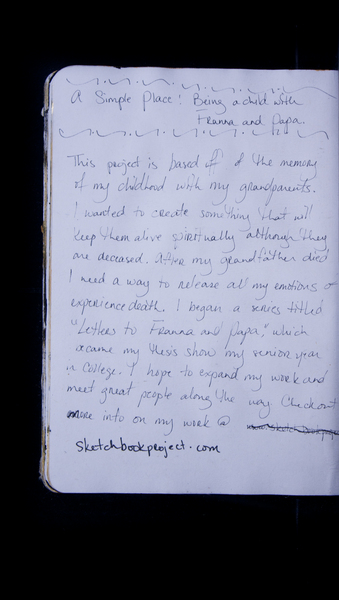 A Simple Place: Being a child with
Franna and Papa.
This project is based off of the memory
of my childhood with my grandparents.
I wanted to create something that will
keep them alive spiritually although they
are deceased. After my grandfather died
I need a way to release all my emotions
experience death. I began a series titled
"Letters to Franna and Papa," which
became my thesis show my senior year
in College. I hope to expand my work and
meet great people along the way. Checkout
more info on my work @
sketchbookproject.com